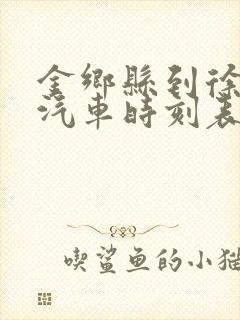 金鄉縣到徐
汽車時刻表
喫鯊鱼的小猫